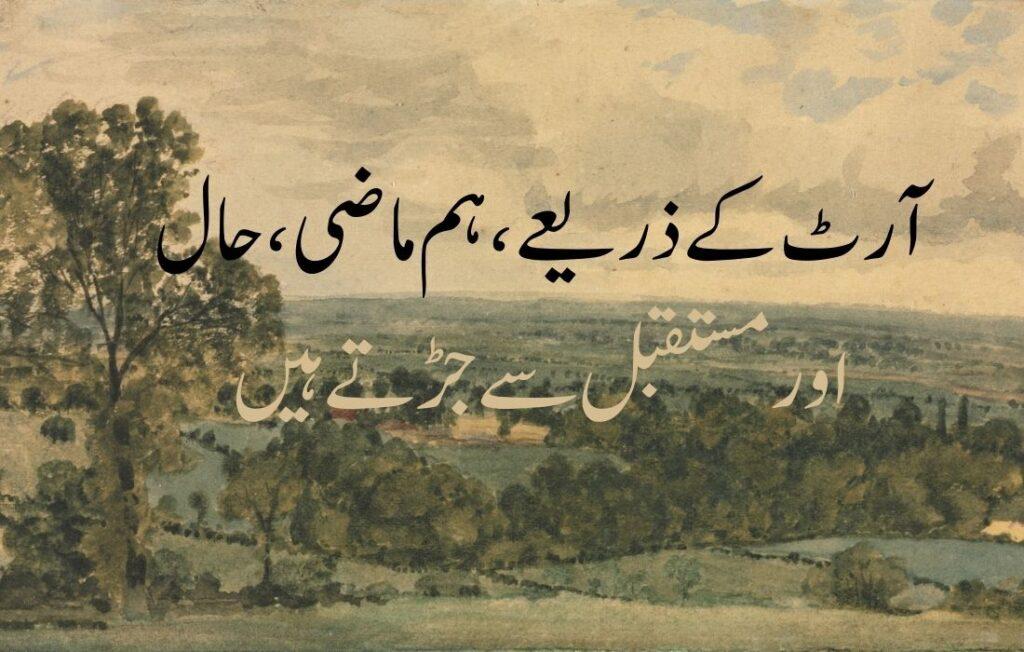 آرٹ کے ذریعے، ہم ماضی، حال
اور مستقبل سے جڑتے ہیں